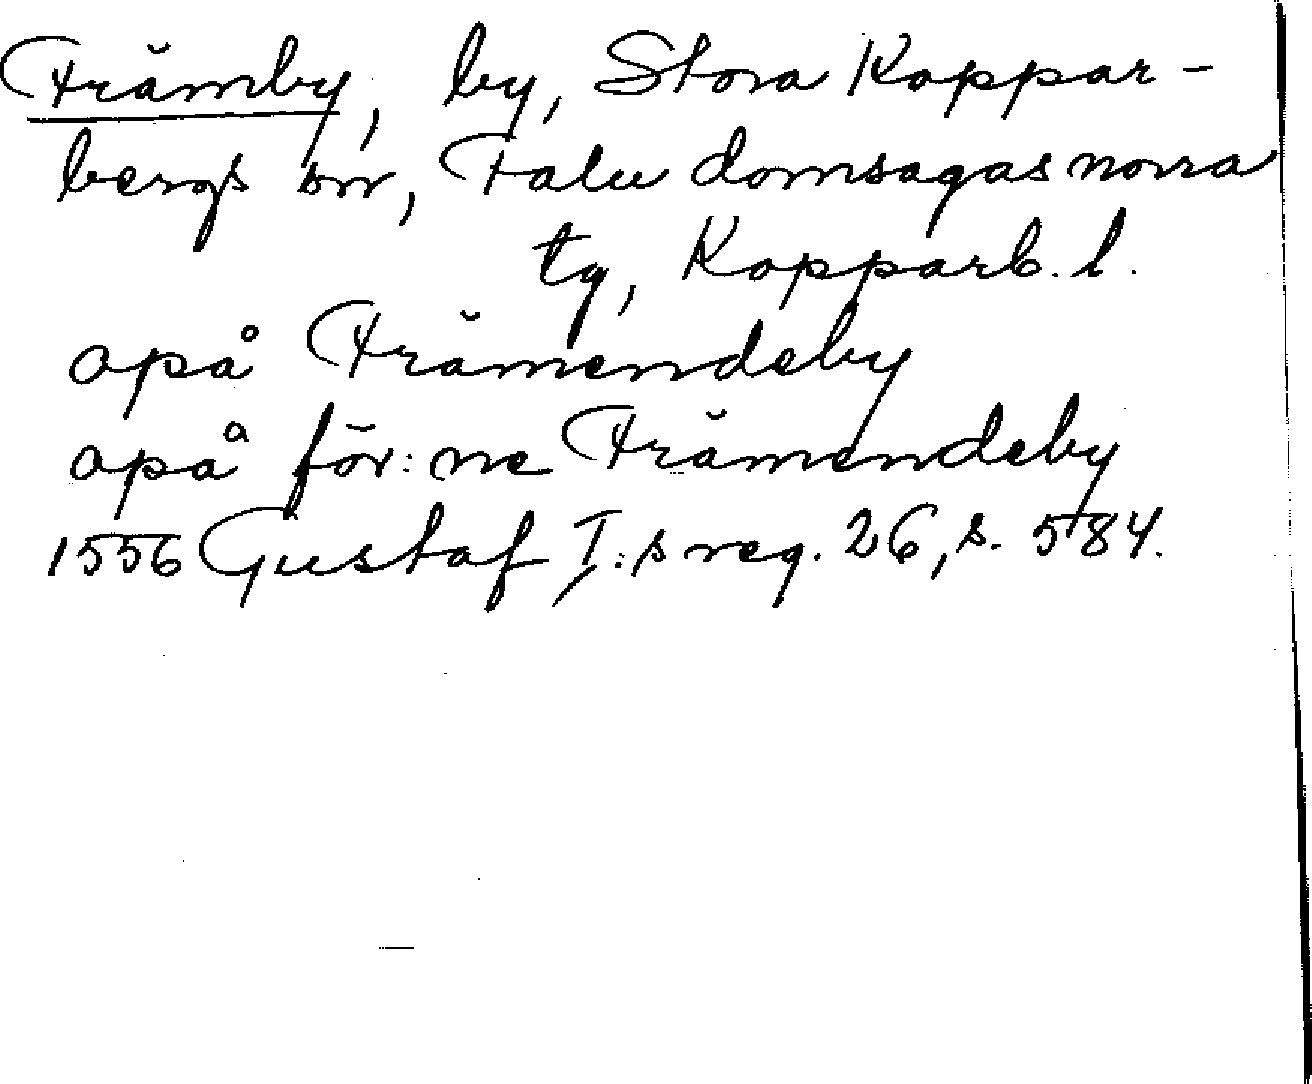 Främby, by, Stora Koppar-
bergs sn, Falu domsagas norra
tg, Kopparb. l.
opå Främendeby
opå för:ne Främendeby
1556 Gustaf I:s reg. 26, s. 584.